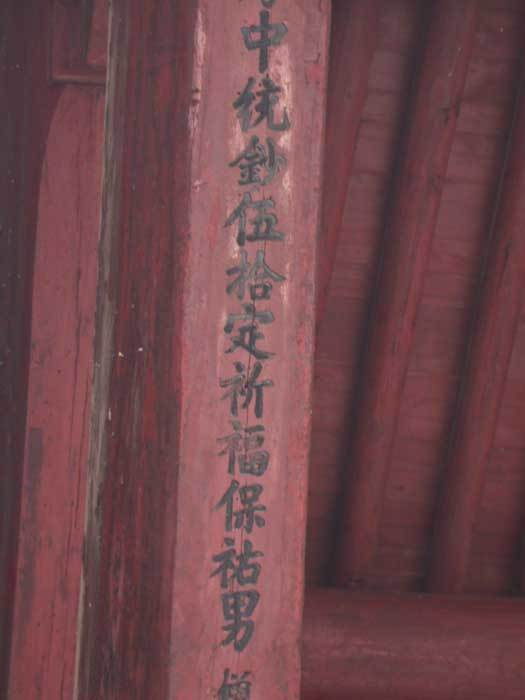 中统鈔伍拾定祈福保祐男